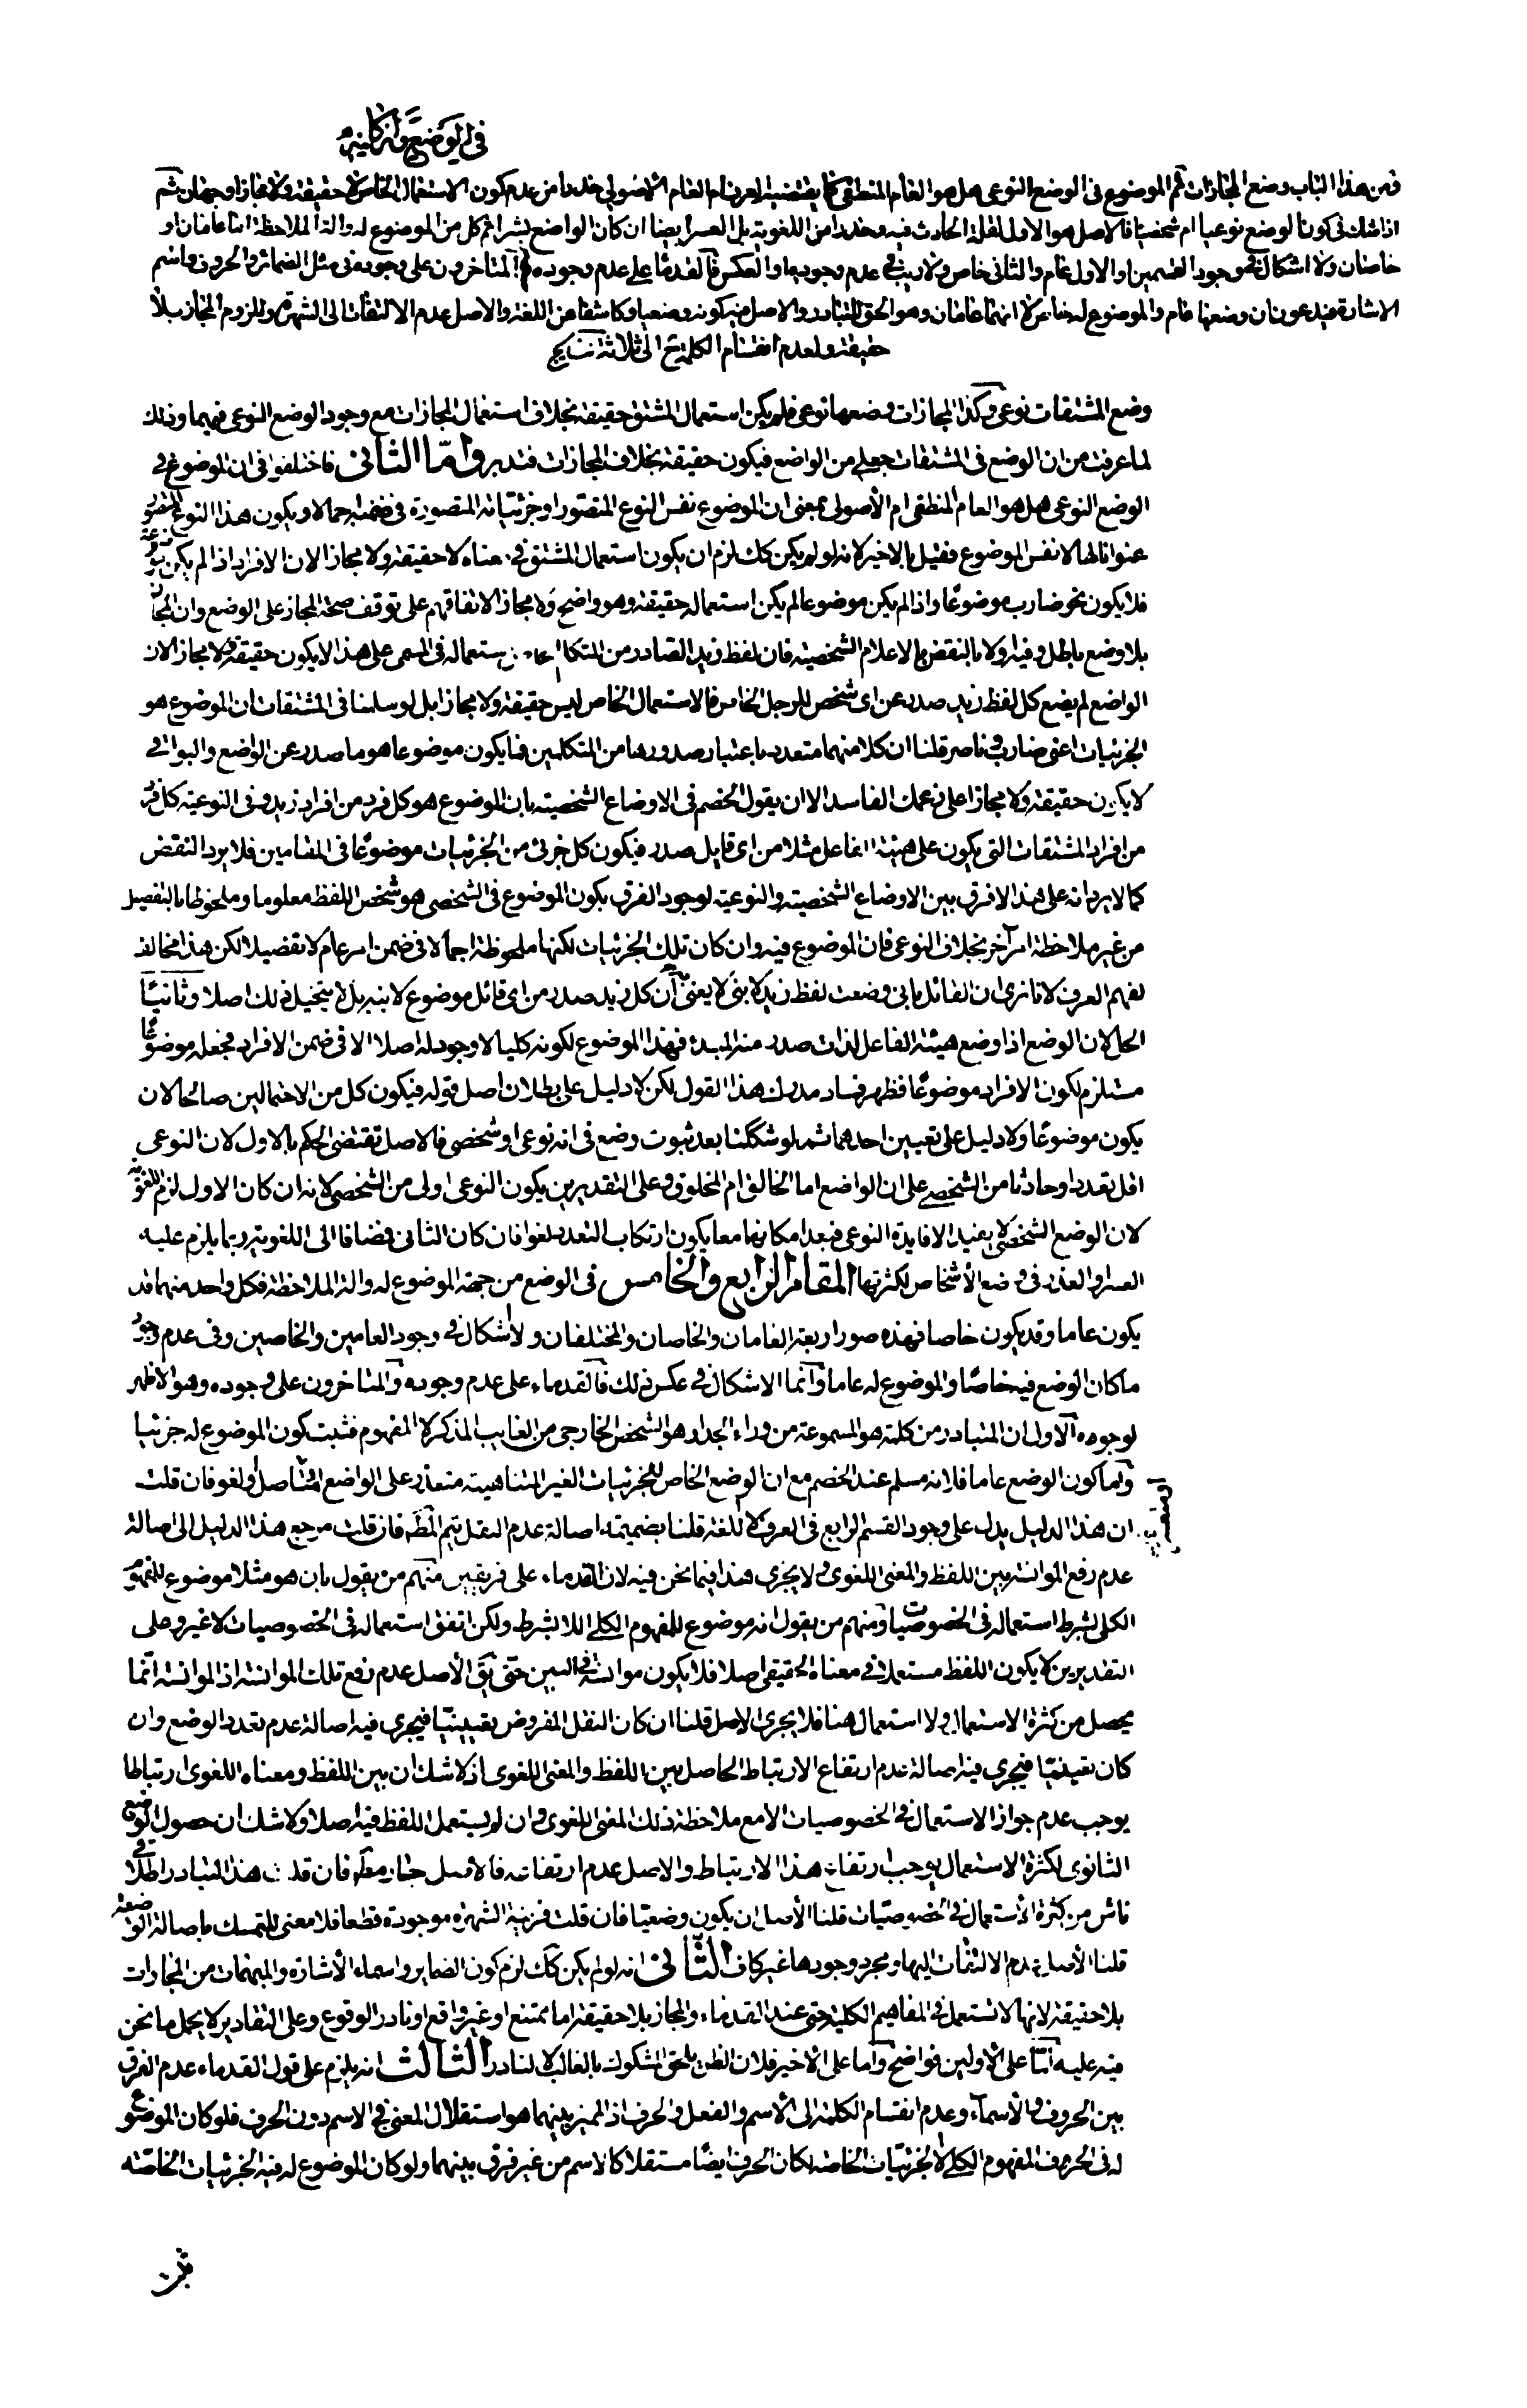 في الوضع واركانه
فمن هذا الباب وضع المجازات ثم الموضوع في الوضع النوعي هل هو العام المنطقي كما يقتضيه العرف ام العام الاصولي حذرا من عدم كون الاستعمال الخاص لا حقيقة ولا مجازا وجهان ثم
اذا شك في كون الوضع نوعيا ام شخصيا فالاصل هو الاول لقلة الحادث فيه وحذرا من اللغوية بل العسر ايضا ان كان الواضع بشرا ثم كل من الموضوع له والة الملاحظة اما عامان او
خاصان ولا اشكال في وجود القسمين والاول عام والثاني خاص ولا ريب في عدم وجوده او العكس فالقدماء على عدم وجوده والمتاخرون على وجوده في مثل الضمائر والحروف واسم
الاشارة فيدعون ان وضعها عام والموضوع له خاص لا انهما عامان وهو الحق للتبادر والاصل فيه كونه وضعيا وكاشفا عن اللغة والاصل عدم الالتفات الى الشهرة وللزوم المجاز بلا
حقيقة ولعدم انقسام الكلمة ح الى ثلاثة نتايج
وضع المشتقات نوعي وكذا المجازات وضعها نوعي فلم يكن استعمال المشتق حقيقة بخلاف استعمال المجازات مع وجود الوضع النوعي فيهما وذلك
لما عرفت من ان الوضع في المشتقات جعلي من الواضع فيكون حقيقة بخلاف المجازات فتدبر واما الثاني فاختلفوا في ان الموضوع في
الوضع النوعي هل هو العام المنطقي ام الأصولي بمعنى ان الموضوع نفس النوع المتصور او جزئياته المتصورة في ضمنه اجمالا ويكون هذا النوع المتصور
عنوانا لها لا نفس الموضوع فقيل بالاخير لانه لو لم يكن كك لزم ان يكون استعمال المشتق في معناه لا حقيقة ولا مجازا لان الافراد اذا لم يكن موضوعة
فلا يكون نحو ضارب موضوعًا واذا لم يكن موضوعا لم يكن استعماله حقيقة وهو واضح ولا مجازا لاتفاقهم على توقف صحة المجاز على الوضع وان المجاز
بلا وضع باطل وفيه اولا بالنقض بالاعلام الشخصية فان لفظ زيد الصادر من المتكلم استعماله في المسمى على هذا لا يكون حقيقة ولا مجازا لان
الواضع لم يضع كل لفظ زيد صدر عن اي شخص للرجل الخاص فالاستعمال الخاص ليس حقيقة ولا مجازا بل لو سلمنا في المشتقات ان الموضوع هو
الجزئيات اعني ضارب وناصر قلنا ان كلا منهما متعدد باعتبار صدورها من المتكلمين فما يكون موضوعا هو ما صدر عن الواضع والبواقي
لا يكون حقيقة ولا مجازا على زعمك الفاسد الا ان يقول الخصم في الاوضاع الشخصية بان الموضوع هو كل فرد من افراد زيد وفي النوعية كل فرد
من افراد المشتقات التي يكون على هيئة الفاعل مثلا من اي قايل صدر فيكون كل جزئي من الجزئيات موضوعًا في المقامين فلا يرد النقض
كما لا يرد انه على هذا لا فرق بين الاوضاع الشخصية والنوعية لوجود الفرق بكون الموضوع في الشخصي هو شخص اللفظ معلوما وملحوظا بالتفصيل
من غير ملاحظة امر آخر بخلاف النوعي فان الموضوع فيه وان كان تلك الجزئيات لكنها ملحوظة اجمالا في ضمن امر عام لا تفصيلا لكن هذا مخالف
لفهم العرف لانا نرى ان القائل باني وضعت لفظ زيد لابني لا يعني به ان كل زيد صدر من اي قائل موضوع لابنه بل لا يتخيل ذلك اصلا وثانيًا
الحل لان الوضع اذا وضع هيئة الفاعل لذات صدر منه المبدء فهذا الموضوع لكونه كليا لا وجود له اصلا الا في ضمن الافراد فجعله موضوعًا
مستلزم لكون الافراد موضوعًا فظهر فساد مدرك هذا القول لكن لا دليل على بطلان اصل قوله فيكون كل من الاحتمالين صالحا لان
يكون موضوعًا ولا دليل على تعيين احدهما ثم لو شككنا بعد ثبوت وضع في انه نوعي او شخصي فالاصل تقتضي الحكم بالاول لان النوعي
اقل تعددا وحادثا من الشخصي على ان الواضع اما الخالق ام المخلوق وعلى التقديرين يكون النوعي اولى من الشخصي لانه ان كان الاول لزم اللغوية
لان الوضع الشخصي لا يفيد الا فايدة النوعي فبعد امكانهما معا يكون ارتكاب التعدد لغوا فان كان الثاني فمضافا الى اللغوية ربما يلزم عليه
العسر او العذر في وضع الأشخاص لكثرتها المقام الرابع والخامس في الوضع من جهة الموضوع له والة الملاحظة فكل واحد منهما قد
يكون عاما وقد يكون خاصا فهذه صور اربعة العامان والخاصان والمختلفان ولا اشكال في وجود العامين والخاصين وفي عدم وجود
ما كان الوضع فيه خاصًا والموضوع له عاما وانما الاشكال في عكس ذلك فالقدماء على عدم وجوده والمتاخرون على وجوده وهو الاظهر
لوجوه الاول ان المتبادر من كلمة هو المسموعة من وراء الجدار هو الشخص الخارجي من الغايب المذكر لا المفهوم فثبت كون الموضوع له جزئيا
واما كون الوضع عاما فلانه مسلم عند الخصم مع ان الوضع الخاص للجزئيات الغير المتناهية متعذر على الواضع ولغو فان قلت
ان هذا الدليل يدل على وجود القسم الرابع في العرف لا اللغة قلنا بضميمة اصالة عدم النقل يتم المط فان قلت مرجع هذا الدليل الى اصالة
عدم رفع الموانسة بين اللفظ والمعنى اللغوي ولا يجري هذا فيما نحن فيه لان القدماء على فريقين منهم من يقول بان هو مثلا موضوع للمفهوم
الكلي بشرط استعماله في الخصوصيات ومنهم من يقول انه موضوع للمفهوم الكلي اللا بشرط ولكن اتفق استعماله في الخصوصيات لا غير وعلى
التقديرين لا يكون اللفظ مستعملا في معناه الحقيقي اصلا فلا يكون موانسة في البين حتى يق الأصل عدم رفع تلك الموانسة اذ الموانسة انما
يحصل من كثرة الاستعمال ولا استعمال هنا فلا يجري الاصل قلنا ان كان النقل المفروض تعيينيا فيجري فيه اصالة عدم تعدد الوضع وان
كان تعينيا فيجري فيه اصالة عدم ارتفاع الارتباط الحاصل بين اللفظ والمعنى اللغوي اذ لا شك ان بين اللفظ ومعناه اللغوي ارتباطا
يوجب عدم جواز الاستعمال في الخصوصيات الا مع ملاحظة ذلك المعنى اللغوي وان لم يستعمل اللفظ فيه اصلا ولا شك ان حصول الوضع
الثانوي لكثرة الاستعمال يوجب ارتفاع هذا الارتباط والاصل عدم ارتفاعه فالاصل فان قلت هذا التبادر اطلاقي
ناش من كثرة الاستعمال في الخصوصيات قلنا الأصل ان يكون وضعيا فان قلت قرينة الشهرة موجودة قطعا فلا معنى للتمسك باصالة الوضعية
قلنا الأصل عدم الالتفات اليها ومجرد وجودها غير كاف الثاني انه لو لم يكن كك لزم كون الضماير واسماء الأشارة والمبهمات من المجازات
بلا حقيقة لانها لا تستعمل في المفاهيم الكلية حتى عند القدماء والمجاز بلا حقيقة اما ممتنع او غير واقع او نادر الوقوع وعلى التقادير لا يحمل ما نحن
فيه عليه اما على الاولين فواضح واما على الاخير فلان الظن يلحق المشكوك بالغالب لا النادر الثالث انه يلزم على قول القدماء عدم الفرق
بين الحروف والأسماء وعدم انقسام الكلمة الى الأسم والفعل والحرف اذ المميز بينهما هو استقلال المعنى في الاسم دون الحرف فلو كان الموضوع
له في الحروف المفهوم الكلي لا الجزئيات الخاصة لكان الحرف ايضًا مستقلا كالاسم من غير فرق بينهما ولو كان الموضوع له فيه الجزئيات الخاصة